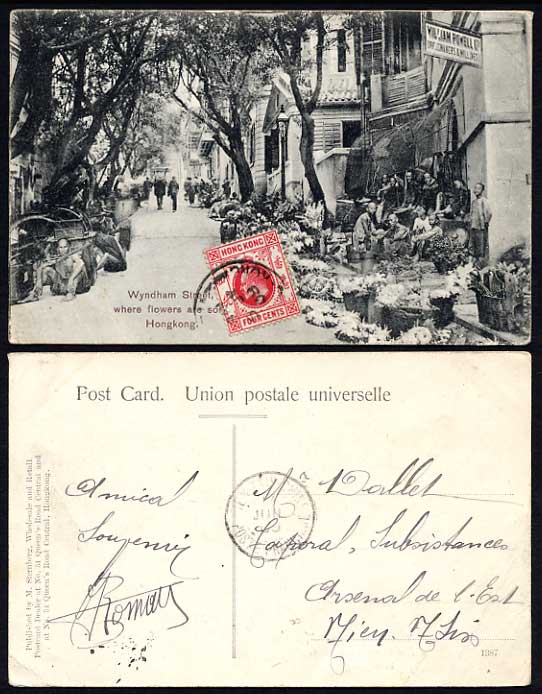 WILLIAM POWELL Ld
Wyndham Street,
where flowers are sold
Hongkong.
HONG KONG
FOUR CENTS
Post Card. Union postale universelle
Published by M. Sternberg, Wholesale and Retail
Postcard Dealer of No. 34 Queen's Road Central and
at No. 34 Queen's Road Central, Hongkong.
Amical
Souvenir
M Dallet
Caporal, Subsistances
Arsenal de l'Est
Tien. Tsin
1387